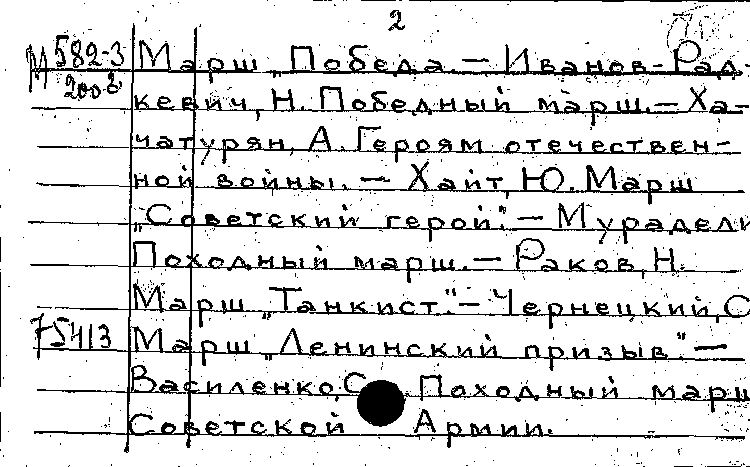 2
М 582-3 Марш „Победа. — Иванов-Рад-
2003 кевич, Н. Победный марш. — Ха-
чатурян, А. Героям отечествен-
ной войны. — Хайт, Ю. Марш
„Советский герой". — Мурадели
Походный марш. — Раков, Н.
Марш „Танкист". — Чернецкий, С
75413 Марш „Ленинский призыв" —
Василенко, С. Походный марш
Советской Армии.